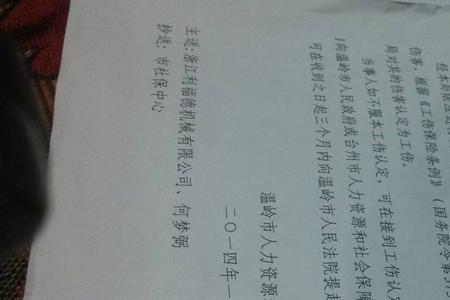 经本局依法进行
伤害，根据《工伤保险条例》（国务院令第375
局对其的伤害认定为工伤。
当事人如不服本工伤认定，可在接到工伤认
向温岭市人民政府或台州市人力资源和社会保障
可在收到之日起三个月内向温岭市人民法院提起
温岭市人力资源
二〇一四年一
主送：浙江利福德机械有限公司、何梦弼
抄送：市社保中心